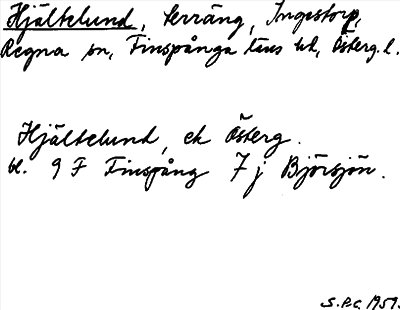 Hjältelund, terräng, Ingestorp,
Regna sn, Finspånga läns hd, Österg. l.
Hjältelund, ek Österg.
bl. 9 F Finspång 7 j Björsjön.
S.P.G. 1959.